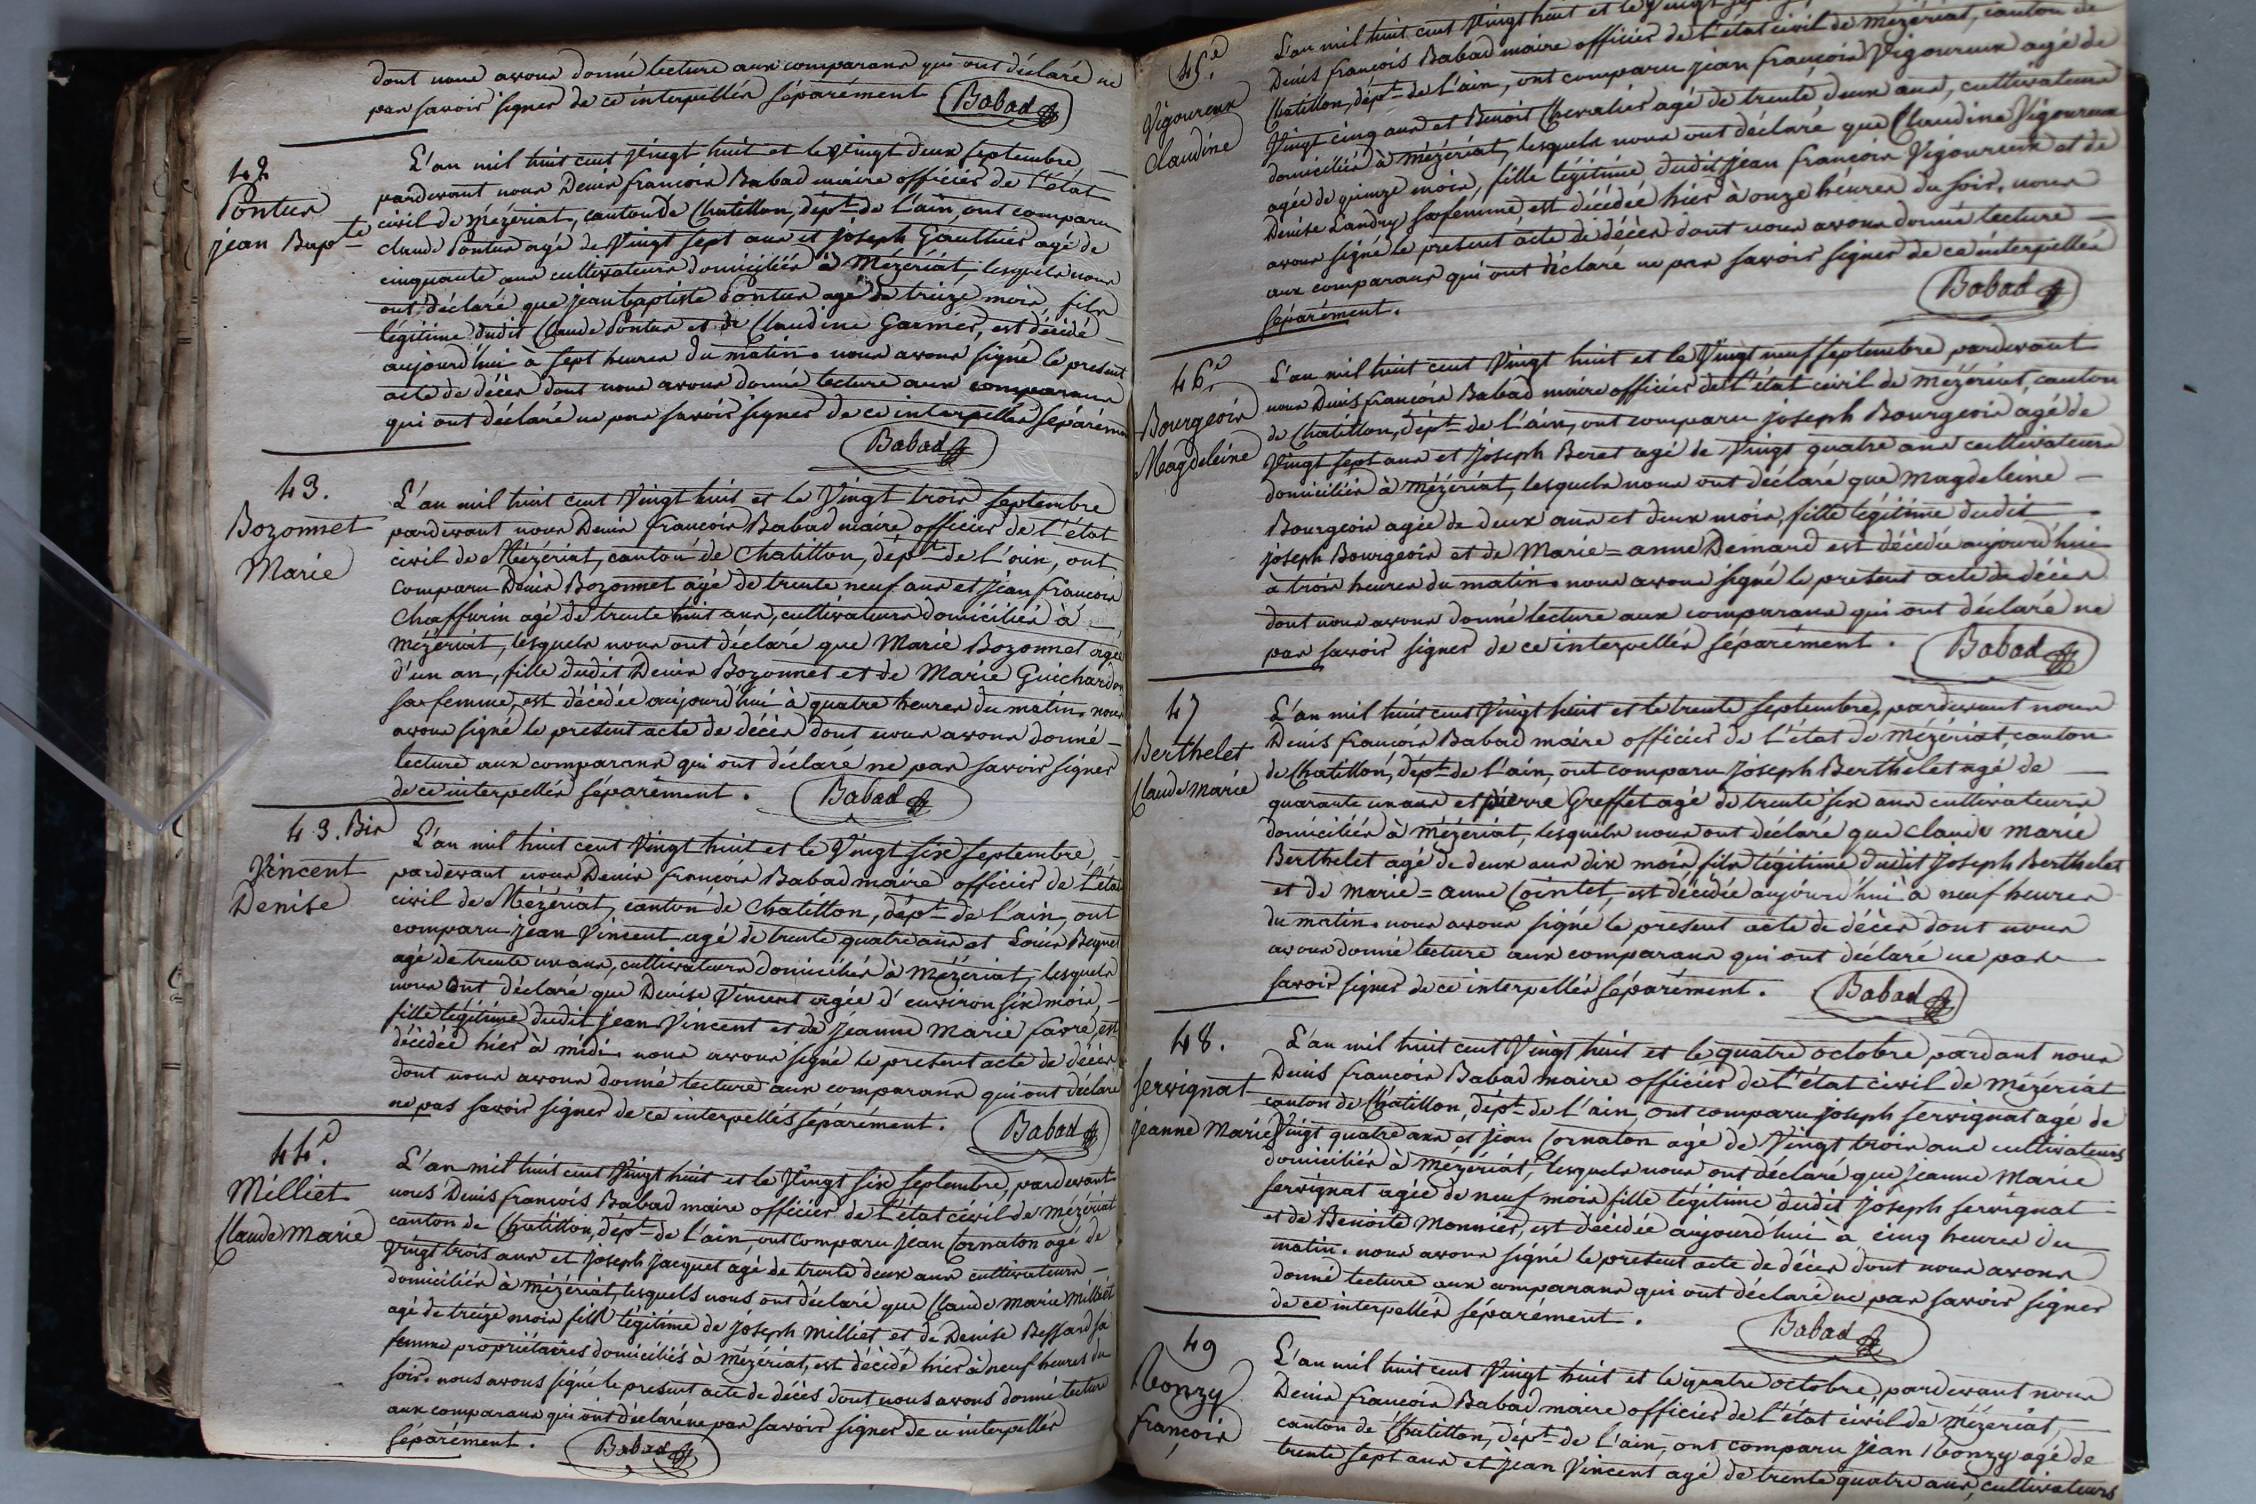 dont nous avons donné lecture aux comparans qui ont déclaré ne
pas savoir signer de ce interpellés séparément Babad
42.
Pontus
jean Bapte
L'an mil huit cent vingt huit et le vingt deux septembre
pardevant nous Denis françois Babad maire officier de l'état
civil de Mézériat, canton de Chatillon, dépt de l'ain, ont comparu
claude Pontus agé de vingt sept ans et joseph Gauthier agé de
cinquante ans cultivateurs domiciliés à Mézériat, lesquels nous
ont déclaré que jean baptiste Pontus agé de treize mois, fils
légitime dudit Claude Pontus et de Claudine Garnier, est décédé
aujourd'hui à sept heures du matin. nous avons signé le présent
acte de décès dont nous avons donné lecture aux comparans
qui ont déclaré ne pas savoir signer de ce interpellés séparément
Babad
43.
Bozonnet
Marie
L'an mil huit cent vingt huit et le vingt trois septembre
pardevant nous Denis françois Babad maire officier de l'état
civil de Mézériat, canton de Chatillon, dépt de l'ain, ont
comparu Denis Bozonnet agé de trente neuf ans et jean françois
Chaffurin agé de trente huit ans, cultivateurs domiciliés à
Mézériat, lesquels nous ont déclaré que Marie Bozonnet agée
d'un an, fille dudit Denis Bozonnet et de Marie Guichardon
sa femme, est décédée aujourd'hui à quatre heures du matin. nous
avons signé le présent acte de décès dont nous avons donné
lecture aux comparans qui ont déclaré ne pas savoir signer
de ce interpellés séparément. Babad
43. Bis
Vincent
Denise
L'an mil huit cent vingt huit et le vingt six septembre
pardevant nous Denis françois Babad maire officier de l'état
civil de Mézériat, canton de Chatillon, dépt de l'ain, ont
comparu jean Vincent agé de trente quatre ans et Louis
agé de trente un ans, cultivateurs domiciliés à Mézériat, lesquels
nous ont déclaré que Denise Vincent agée d'environ six mois,
fille légitime dudit jean Vincent et de jeanne Marie favre, est
décédée hier à midi. nous avons signé le présent acte de décès
dont nous avons donné lecture aux comparans qui ont déclaré
ne pas savoir signer de ce interpellés séparément. Babad
44e.
Milliet
Claude Marie
L'an mil huit cent vingt huit et le vingt six septembre, pardevant
nous Denis françois Babad maire officier de l'état civil de Mézériat
canton de Chatillon, dépt de l'ain, ont comparu jean Cornaton agé de
vingt trois ans et joseph jacquet agé de trente deux ans cultivateurs
domiciliés à Mézériat, lesquels nous ont déclaré que Claude Marie Milliet
agé de treize mois fils légitime de joseph Milliet et de Denise Bessard sa
femme propriétaires domiciliés à Mézériat, est décédé hier à neuf heures du
soir. nous avons signé le présent acte de décès dont nous avons donné lecture
aux comparans qui ont déclaré ne pas savoir signer de ce interpellés
séparément. Babad
45.e
Vigoureux
Claudine
L'an mil huit cent vingt huit et le vingt
Denis françois Babad maire officier de l'état civil de Mézériat, canton de
Chatillon, dépt de l'ain, ont comparu jean françois Vigoureux agé de
vingt cinq ans et Benoit Chevalier agé de trente deux ans, cultivateurs
domiciliés à Mézériat, lesquels nous ont déclaré que Claudine Vigoureux
agée de quinze mois, fille légitime dudit jean françois Vigoureux et de
Denise Landry sa femme, est décédée hier à onze heures du soir. nous
avons signé le présent acte de décès dont nous avons donné lecture
aux comparans qui ont déclaré ne pas savoir signer de ce interpellés
séparément. Babad
46.e
Bourgeois
Magdeleine
L'an mil huit cent vingt huit et le vingt neuf septembre pardevant
nous Denis françois Babad maire officier de l'état civil de Mézériat, canton
de Chatillon, dépt de l'ain, ont comparu joseph Bourgeois agé de
vingt sept ans et joseph Beret agé de vingt quatre ans cultivateurs
domiciliés à Mézériat, lesquels nous ont déclaré que Magdeleine
Bourgeois agée de deux ans et deux mois, fille légitime dudit
joseph Bourgeois et de Marie=anne Demard est décédée aujourd'hui
à trois heures du matin. nous avons signé le présent acte de décès
dont nous avons donné lecture aux comparans qui ont déclaré ne
pas savoir signer de ce interpellés séparément. Babad
47
Berthelet
Claude Marie
L'an mil huit cent vingt huit et le trente septembre, pardevant nous
Denis françois Babad maire officier de l'état de Mézériat, canton
de Chatillon, dépt de l'ain, ont comparu joseph Berthelet agé de
quarante un ans et pierre Greffet agé de trente six ans cultivateurs
domiciliés à Mézériat, lesquels nous ont déclaré que Claude Marie
Berthelet agé de deux ans dix mois fils légitime dudit joseph Berthelet
et de Marie=anne Cointet, est décédée aujourd'hui à neuf heures
du matin. nous avons signé le présent acte de décès dont nous
avons donné lecture aux comparans qui ont déclaré ne pas
savoir signer de ce interpellés séparément. Babad
48.
servignat
jeanne Marie
L'an mil huit cent vingt huit et le quatre octobre pardant nous
Denis françois Babad maire officier de l'état civil de Mézériat
canton de Chatillon, dépt de l'ain, ont comparu joseph servignat agé de
vingt quatre ans et jean Cornaton agé de vingt trois ans cultivateurs
domiciliés à Mézériat, lesquels nous ont déclaré que jeanne Marie
servignat agée de neuf mois fille légitime dudit joseph servignat
et de Benoite Monnier, est décédée aujourd'hui à cinq heures du
matin. nous avons signé le présent acte de décès dont nous avons
donné lecture aux comparans qui ont déclaré ne pas savoir signer
de ce interpellés séparément. Babad
49
françois
L'an mil huit cent vingt huit et le quatre octobre, pardevant nous
Denis françois Babad maire officier de l'état civil de Mézériat,
canton de Chatillon, dépt de l'ain, ont comparu jean agé de
trente sept ans et jean Vincent agé de trente quatre ans, cultivateurs